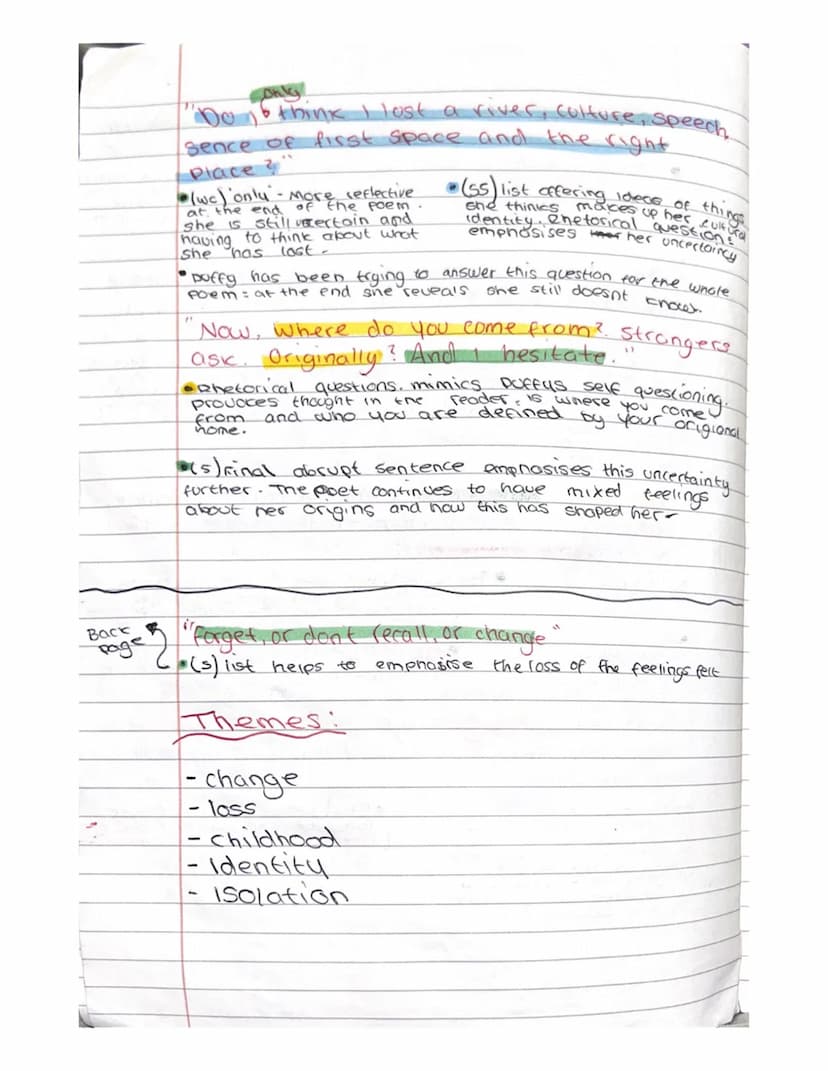 only
"Do I think I lost a river, culture, speech,
sence of first space and the right
place?"
•(wc) 'only' - More reflective
at the end of the poem.
she is still uncertain and
having to think about what
she has lost.
•(ss) list offering ideas of things
she thinks makes up her cultural
identity. Rhetorical question:
emphasises her uncertaincy
•Duffy has been trying to answer this question for the whole
poem: at the end she reveals she still doesnt know.
"Now, where do you come from? strangers
ask. Originally? And I hesitate."
•Rhetorical questions. mimics Duffys self questioning.
provoces thought in the reader. is where you come
from and who you are defined by your origional
home.
•(s) Final abrupt sentence emphasises this uncertainty
further. The poet continues to have mixed feelings
about her origins and how this has shaped her-
Back
page
"forget, or don't recall, or change"
•(s) list helps to emphasise the loss of the feelings felt
Themes:
- change
- loss
- childhood
- Identity
- ISOlation